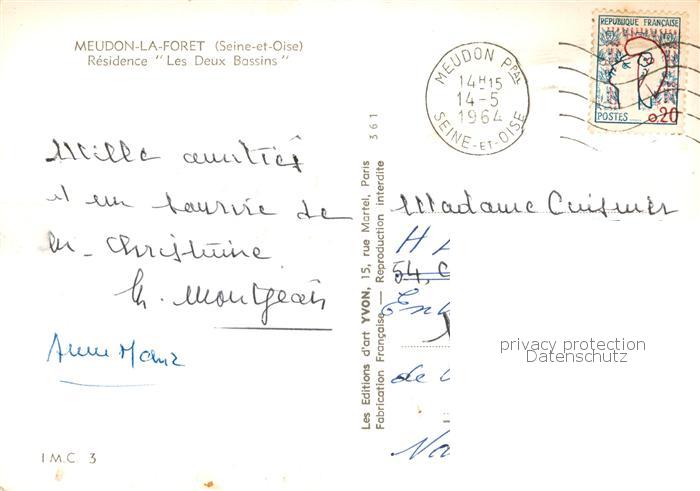 MEUDON-LA-FORET (Seine-et-Oise)
Résidence "Les Deux Bassins"
MEUDON PPAL
14H15
14-5
1964
SEINE-ET-OISE
REPUBLIQUE FRANÇAISE
POSTES
0,20
Mille amitiés
et un sourire de
Christine
Montgeais
Anne Marie
I.M.C. 3
Les Editions d'art YVON, 15, rue Martel, Paris
Fabrication Française — Reproduction interdite
361
Madame Cuisinier
54, C
de
privacy protection
Datenschutz